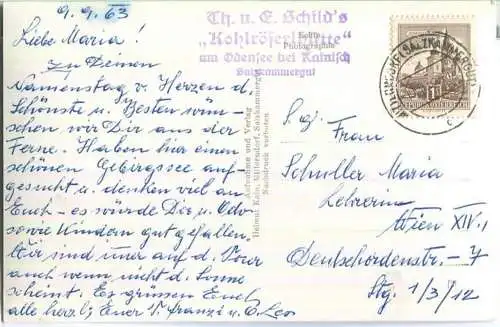 9.9.63
Liebe Maria!
Zu Deinen
Namenstag v. Herzen d.
Schönste u. Besten wün-
schen wir Dir aus der
Ferne. Haben hier einen
schönen Gebirgssee auf-
gesucht u. denken viel an
Euch - es würde Dir u. Edv.
sowie Kindern gut gefallen.
Wir sind immer auf d. Tour
auch wenn nicht d. Sonne
scheint. Es grüssen Euch
alle herzl.: Euer T. Franzi u. O. Leo
Th. u. E. Schild's
„Kohlröserlhütte"
am Ödensee bei Kainisch
Salzkammergut
Echte
Photographie
Aufnahme und Verlag
Helmut Kain, Mitterndorf, Salzkammergut
Nachdruck verboten
SALZKAMMERGUT
REPUBLIK ÖSTERREICH
S. g. Frau
Schuller Maria
Lehrerin
Wien XIV.,
Deutschordenstr. - 7
Stg. 1/3/12